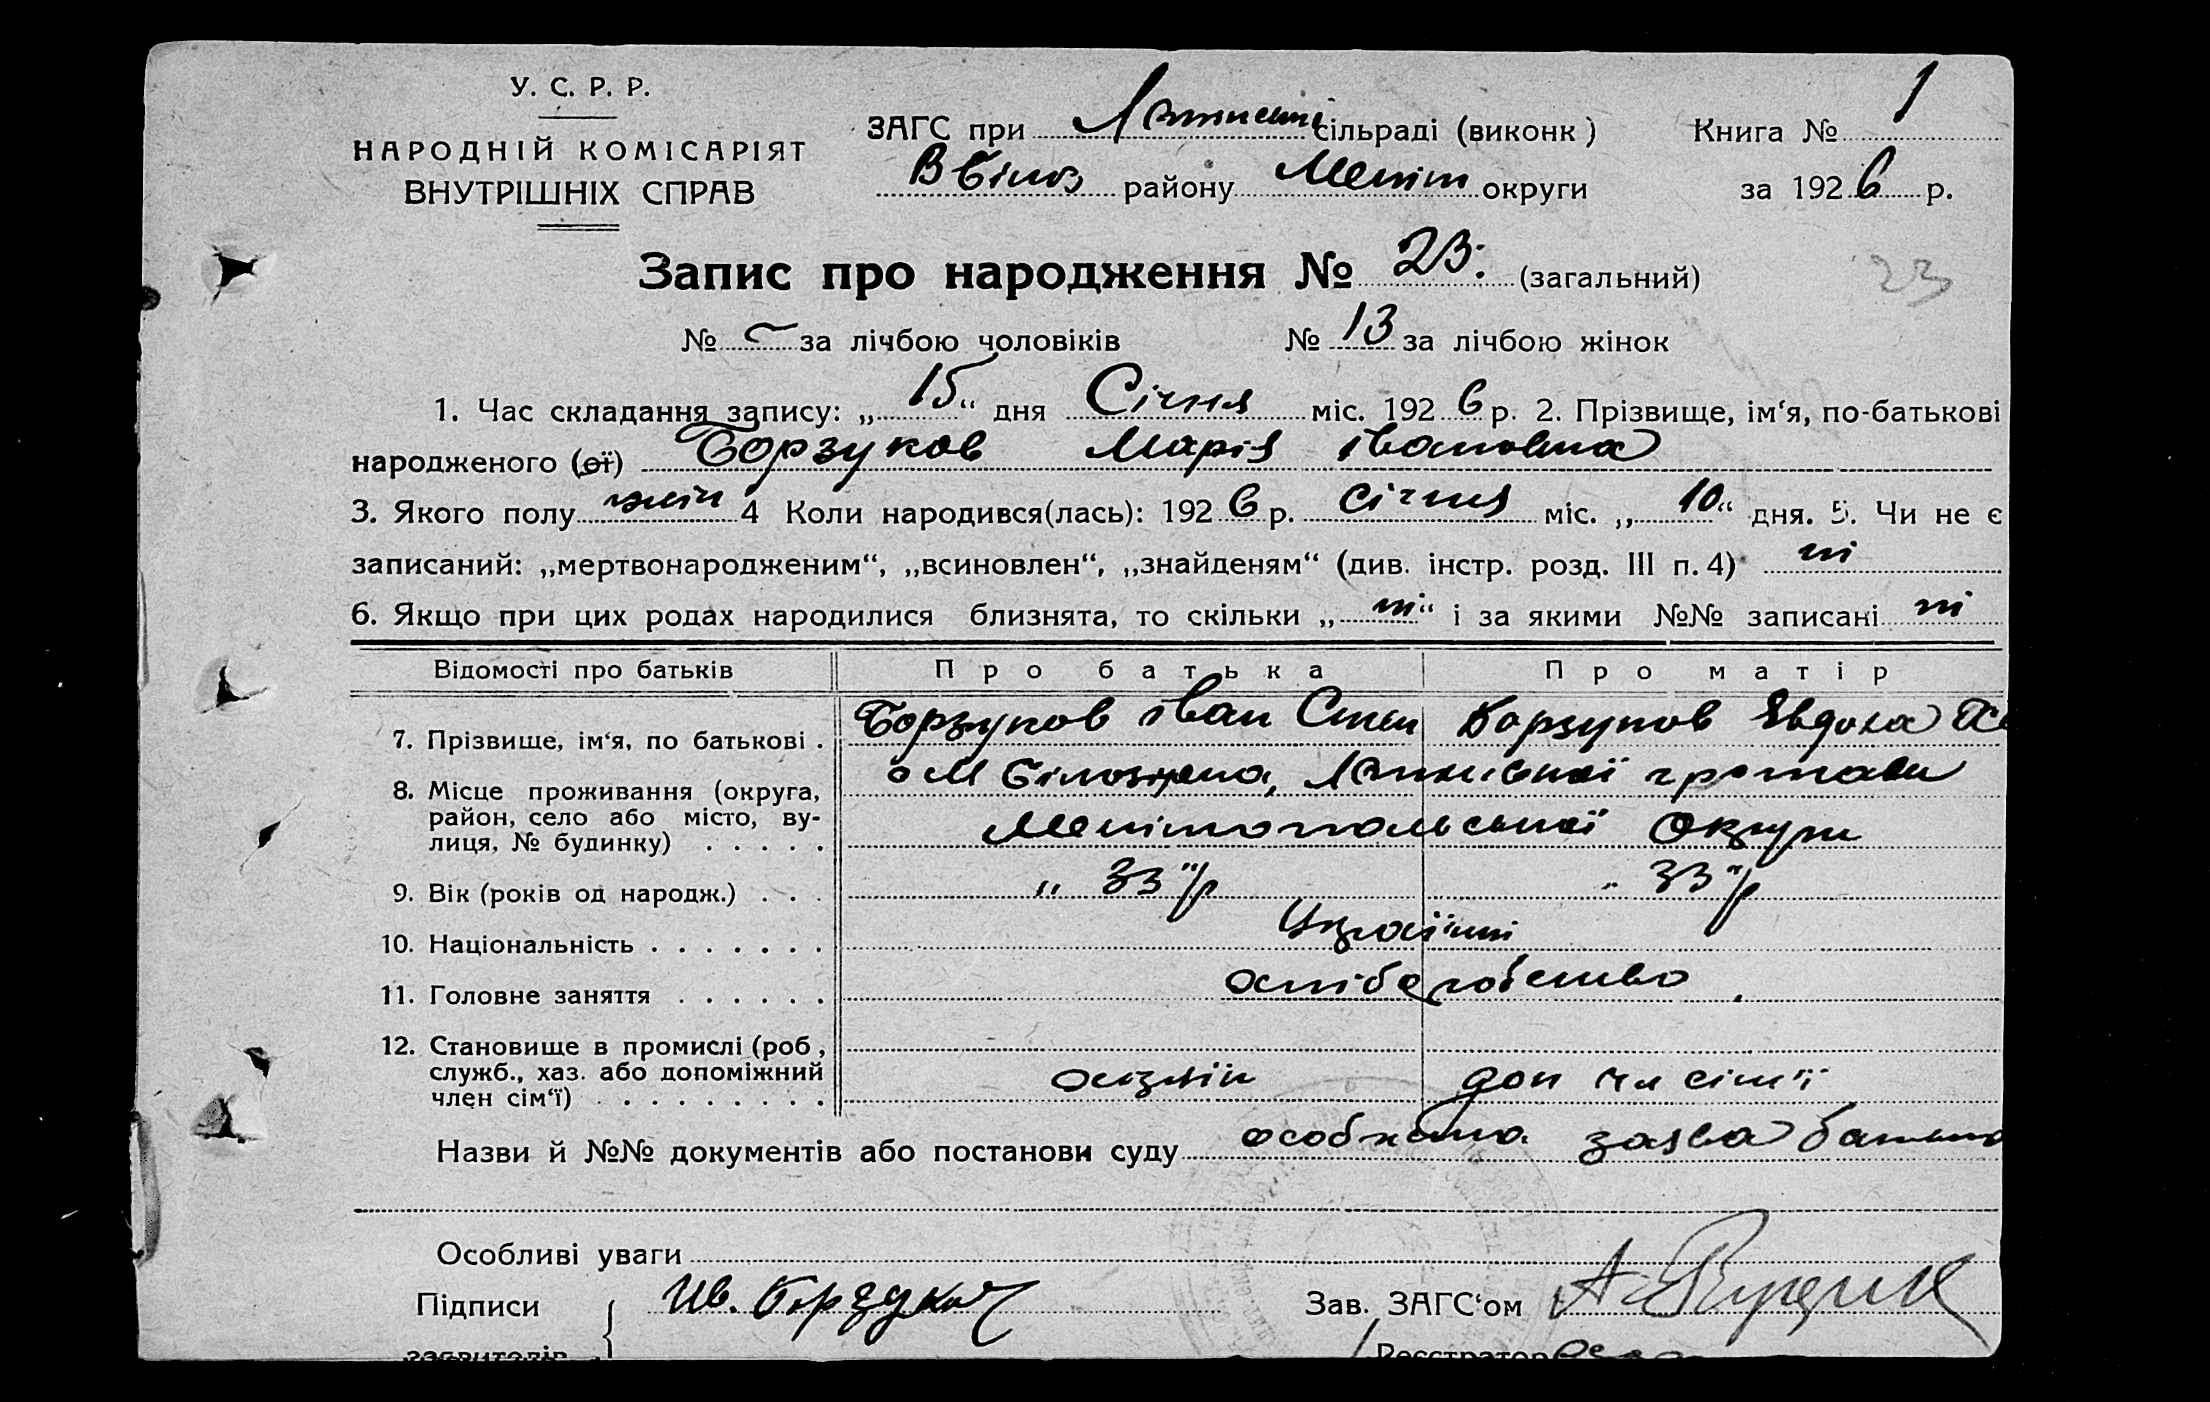 У. С. Р. Р.
НАРОДНІЙ КОМІСАРІЯТ
ВНУТРІШНІХ СПРАВ
ЗАГС при сільраді (виконк) Книга № 1
В Білоз району Меліт округи за 1926 р.
Запис про народження № 23. (загальний) 23
№ за лічбою чоловіків № 13 за лічбою жінок
1. Час складання запису: „15“ дня Січня міс. 1926 р. 2. Прізвище, ім‘я, по-батькові
народженого (ої) Борзуков Марія Івановна
3. Якого полу жін 4 Коли народився(лась): 1926 р. Січня міс. „10“ дня. 5. Чи не є
записаний: „мертвонародженим“, „всиновлен“, „знайденям“ (див. інстр. розд. III п. 4) ні
6. Якщо при цих родах народилися близнята, то скільки „ні“ і за якими №№ записані ні
Відомості про батьків Про батька Про матір
7. Прізвище, ім‘я, по батькові . Борзуков Іван Борзуков Явдоха
8. Місце проживання (округа, район, село або місто, вулиця, № будинку) . . . . . М Білозірка, громади
Мелітопольської Округи
9. Вік (років од народж.) . . . „ 33 „ р „ 33 „ р
10. Національність . . . . . . . Українці
11. Головне заняття . . . . . . хліборобство
12. Становище в промислі (роб, служб., хаз. або допоміжний член сім‘ї) . . . . . . . . . хазяїн доп чл сім'ї
Назви й №№ документів або постанови суду особиста заява батька
Особливі уваги
Підписи Ив. Борзуков Зав. ЗАГС‘ом
заявителів Реєстратор